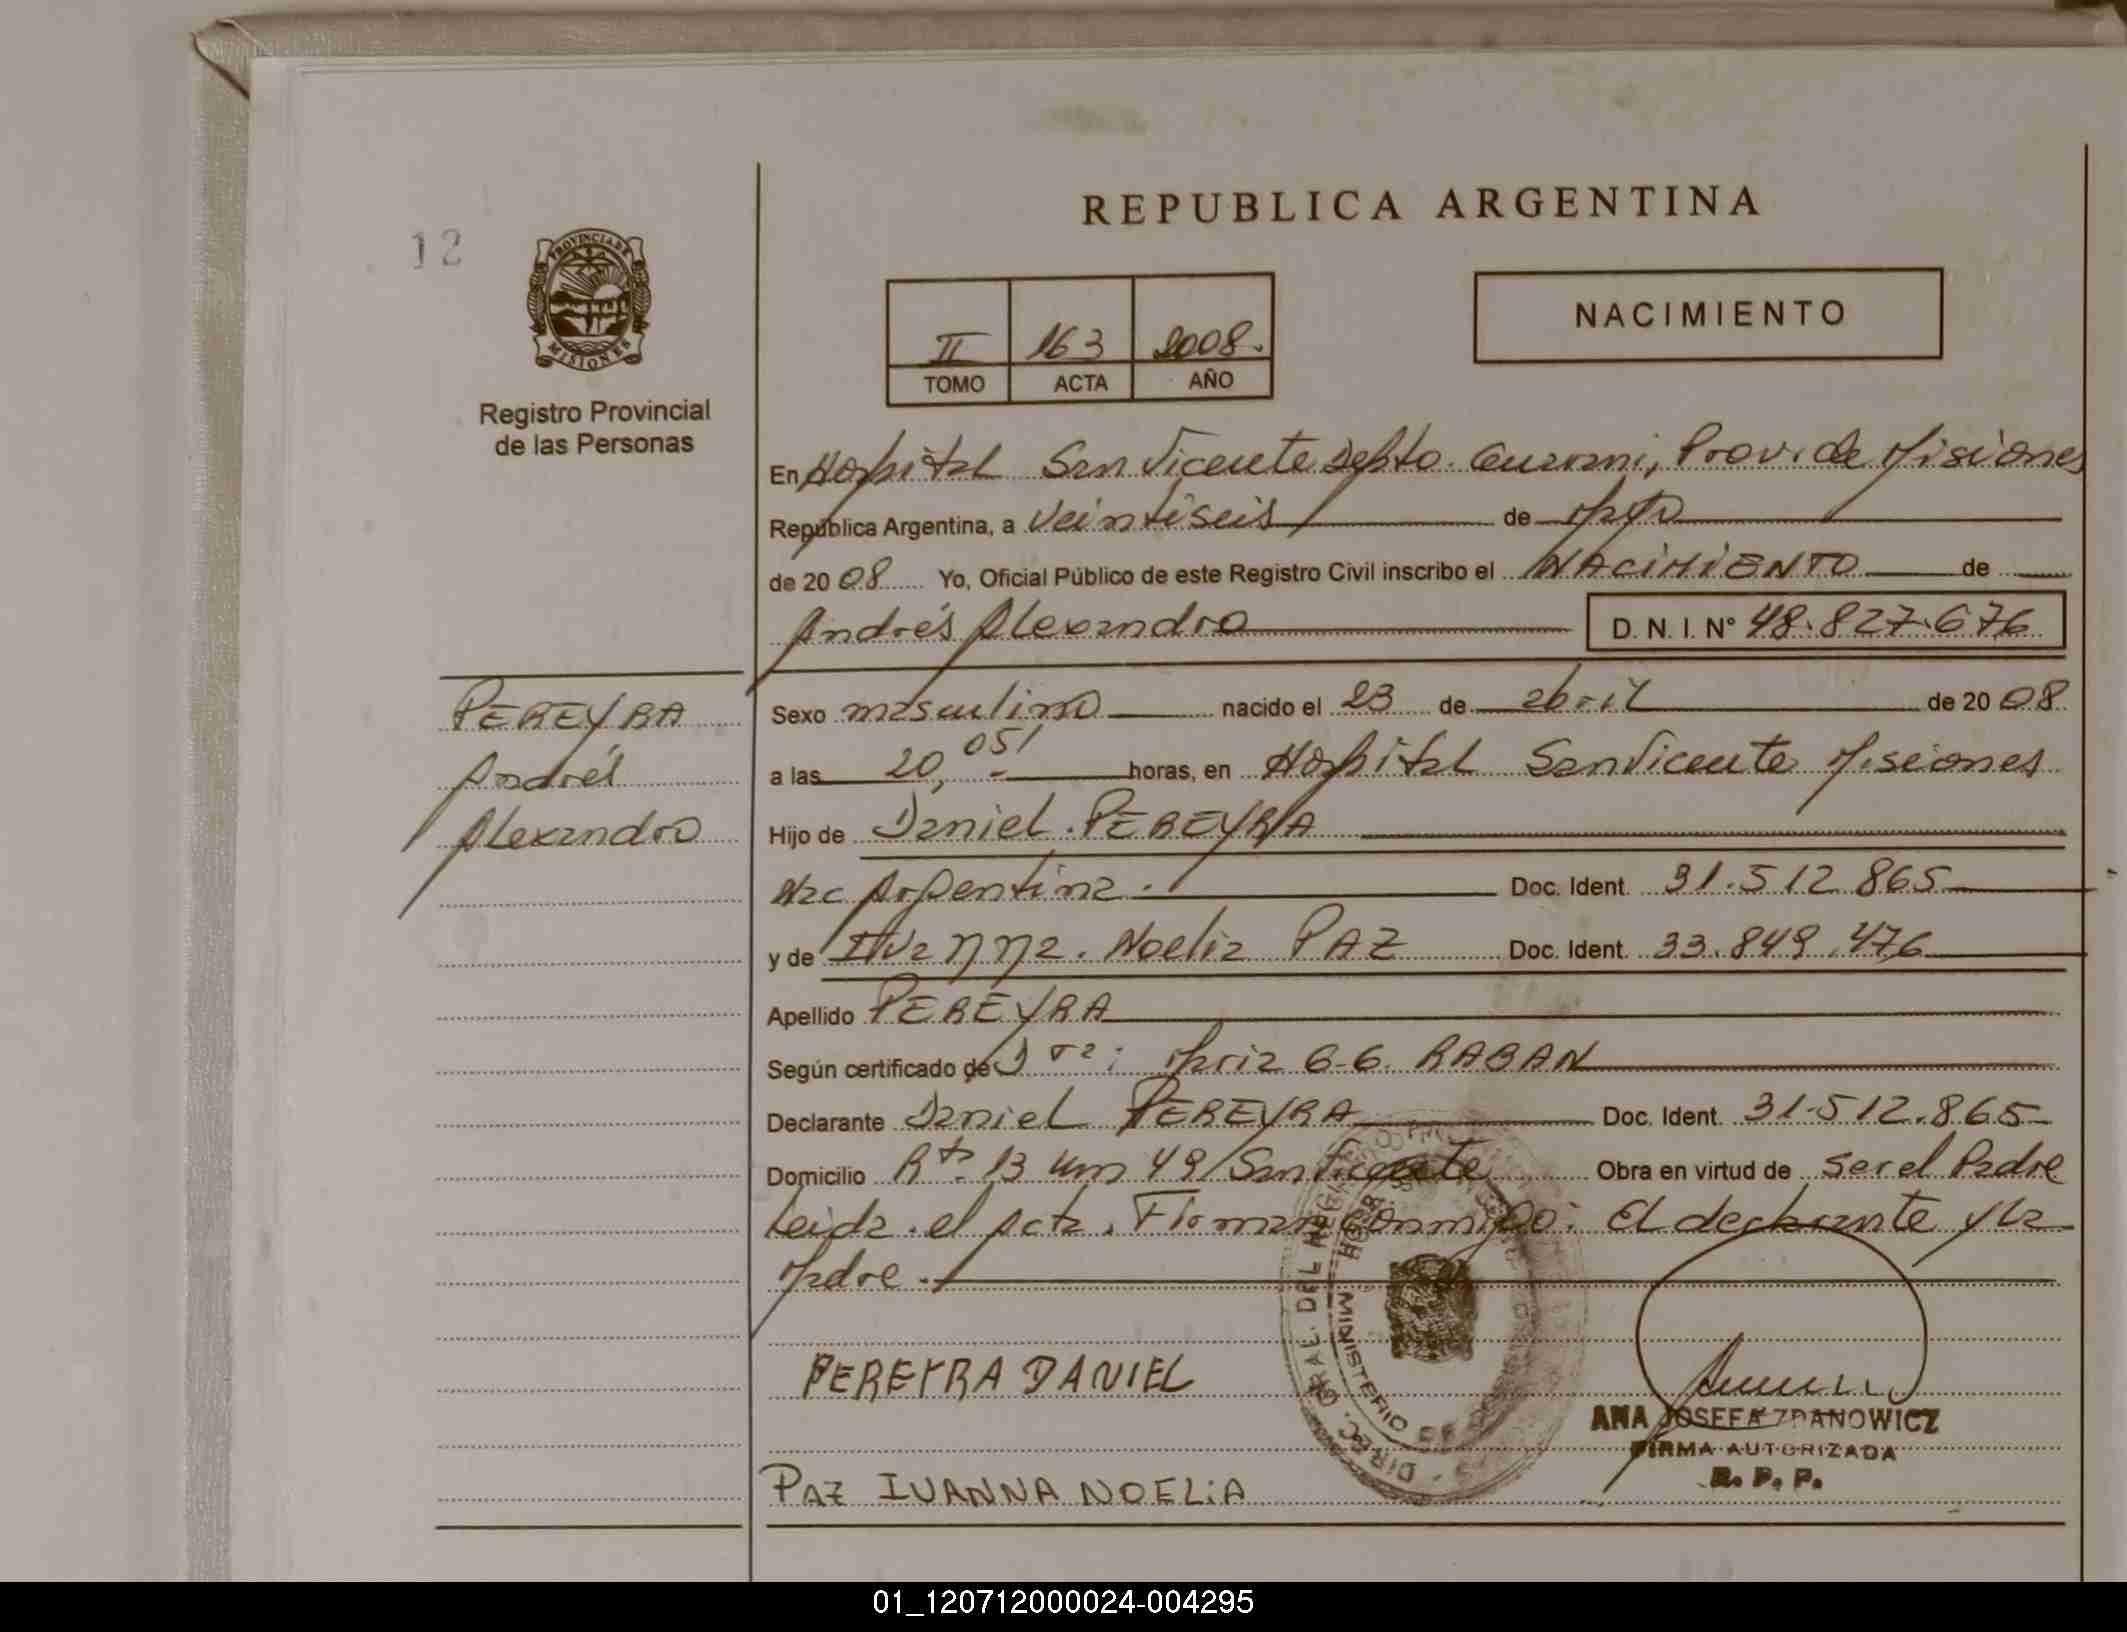 REPUBLICA ARGENTINA
12
PROVINCIA DE MISIONES
Registro Provincial
de las Personas
II 163 2008.
TOMO ACTA AÑO
NACIMIENTO
En Hospital San Vicente Depto. Guarani, Prov. de Misiones
Republica Argentina, a veintiseis de Mayo
de 2008 Yo, Oficial Público de este Registro Civil inscribo el NACIMIENTO de
Andrés Alexandro D. N. I. N° 48.827.676
PEREYRA
Andrés
Alexandro
Sexo masculino nacido el 23 de abril de 2008
a las 20,05' horas, en Hospital San Vicente Misiones
Hijo de Daniel PEREYRA
Nac Argentina. Doc. Ident. 31.512.865
y de Ivanna Noelia PAZ Doc. Ident. 33.849.476
Apellido PEREYRA
Según certificado de Dra: Maria G. RABAN
Declarante Daniel PEREYRA Doc. Ident. 31.512.865
Domicilio Rta 13 km 49 San Vicente Obra en virtud de ser el Padre
Leida el Acta. Firman conmigo: El declarante y la
Madre.
DIREC. GRAL. DEL MINISTERIO DE
PEREYRA DANIEL
ANA JOSEFA ZDANOWICZ
FIRMA AUTORIZADA
R. P. P.
PAZ IVANNA NOELIA
01_120712000024-004295